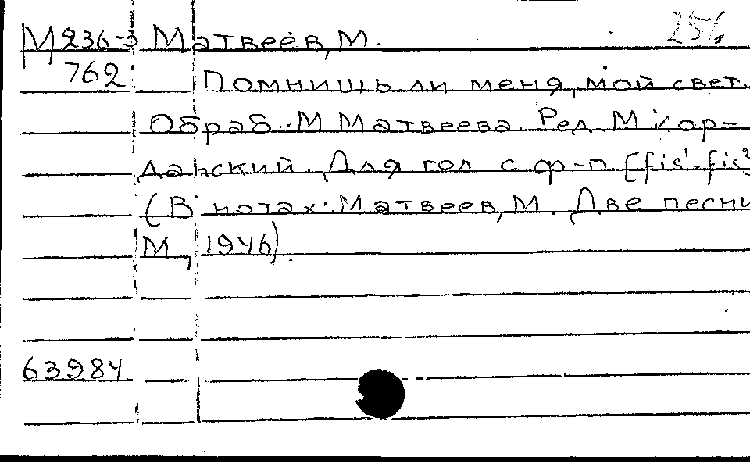 М236-3 Матвеев, М. 256
762 Помнишь ли меня, мой свет.
Обраб. М Матвеева. Ред. М Иор-
данский. Для гол с ф-п [fis¹-fis²
(В нотах: Матвеев, М. Две песни
М, 1946)
63984